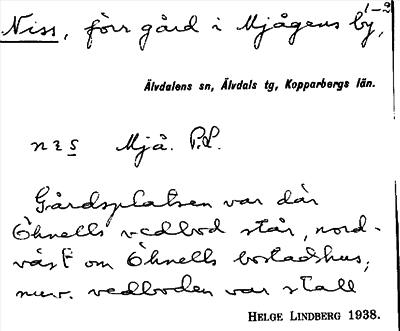 1-2
Niss, förr gård i Mjågens by,
Älvdalens sn, Älvdals tg, Kopparbergs län.
Mjå. P.L.
Gårdsplatsen var där
Öhnells vedbod står, nord-
väst om Öhnells bostadshus;
nuv. vedboden var stall
HELGE LINDBERG 1938.